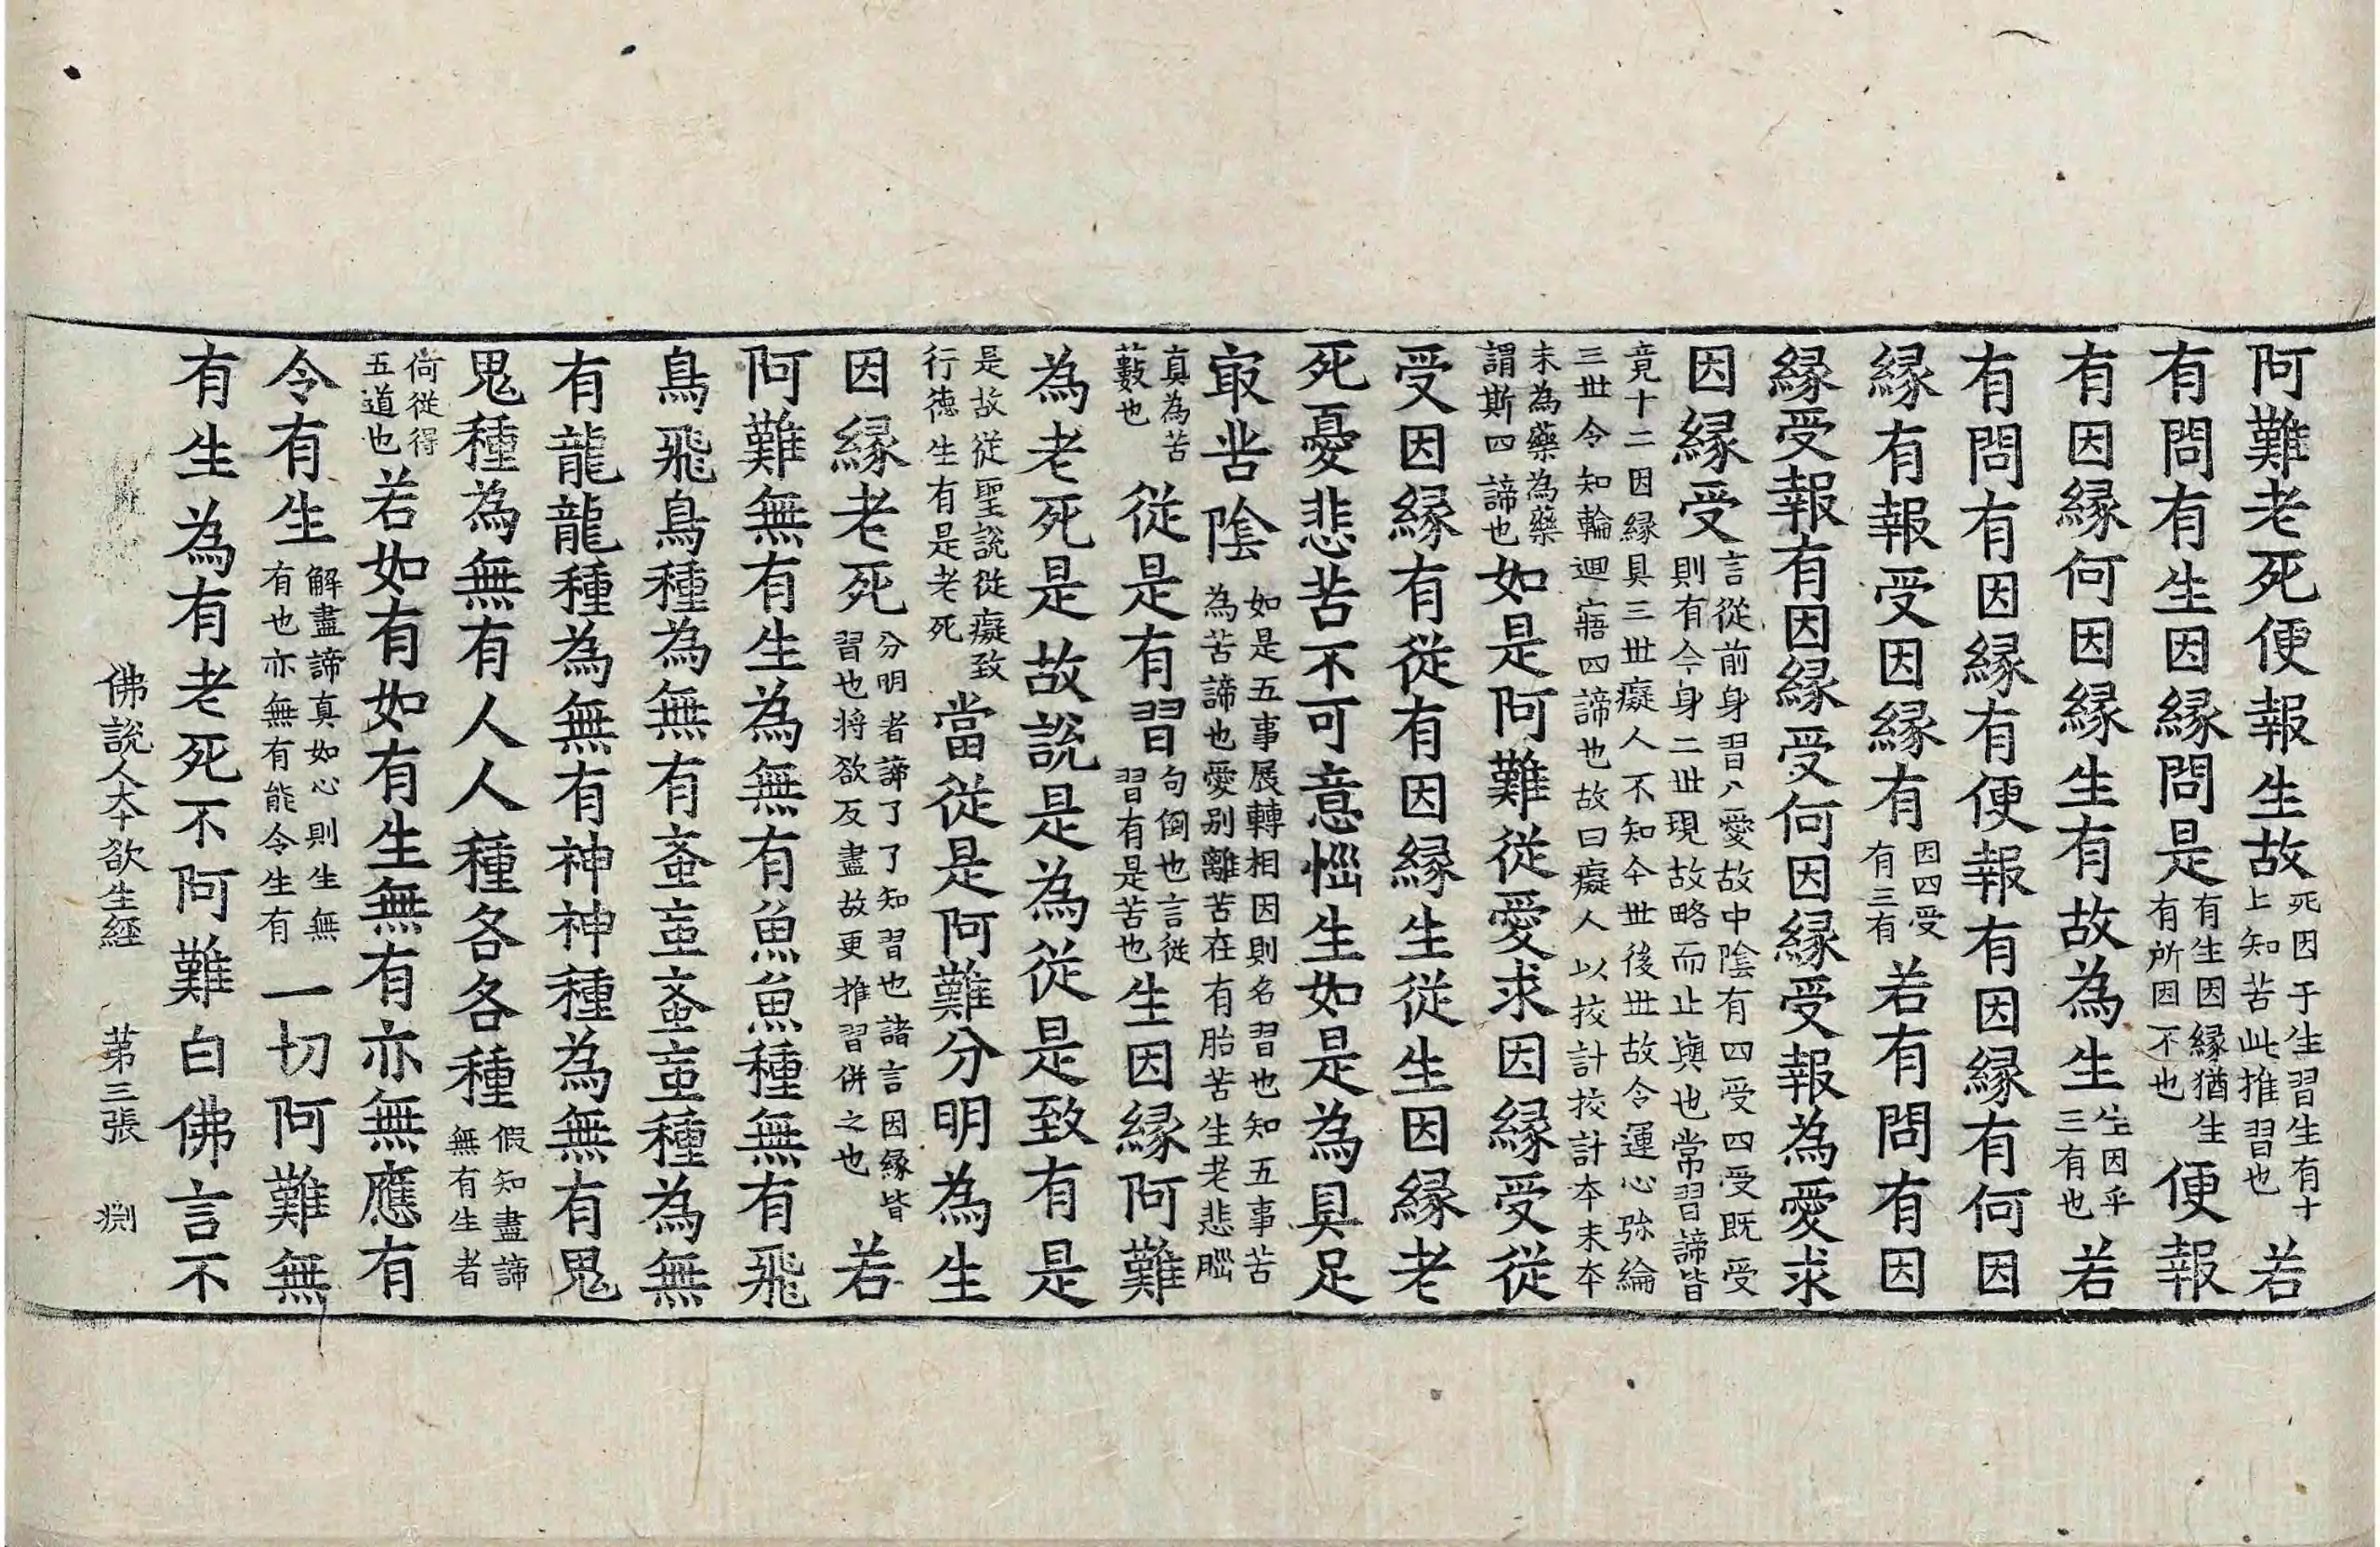 阿難老死便報生故死因于生習生有十上知苦此推習也若
有問有生因緣問是有生因緣猶生有所因不也便報
有因緣何因緣生有故為生生因乎三有也若
有問有因緣有便報有因緣有何因
緣有報受因緣有因四受有三有若有問有因
緣受報有因緣受何因緣受報為愛求
因緣受言從前身習入愛故中陰有四受四受既受則有今身二世現故略而止與也常習諦皆
竟十二因緣具三世癡人不知今世後世故令運心弥綸三世令知輪迴寤四諦也故曰癡人以挍計挍計本末本
末為藥為藥謂斯四諦也如是阿難從愛求因緣受從
受因緣有從有因緣生從生因緣老
死憂悲苦不可意惱生如是為具足
㝡苦陰如是五事展轉相因則名習也知五事苦為苦諦也愛別離苦在有胎苦生老悲惱
真為苦藪也從是有習句倒也言從習有是苦也生因緣阿難
為老死是故說是為從是致有是
是故從聖說從癡致行德生有是老死當從是阿難分明為生
因緣老死分明者諦了了知習也諸言因緣皆習也将欲反盡故更推習併之也若
阿難無有生為無有魚魚種無有飛
鳥飛鳥種為無有蚉䖟蚉䖟種為無
有龍龍種為無有神神種為無有鬼
鬼種為無有人人種各各種假知盡諦無有生者
尚從得五道也若如有如有生無有亦無應有
令有生解盡諦真如心則生無有也亦無有能令生有一切阿難無
有生為有老死不阿難白佛言不
佛說人本欲生經 第三張 渊